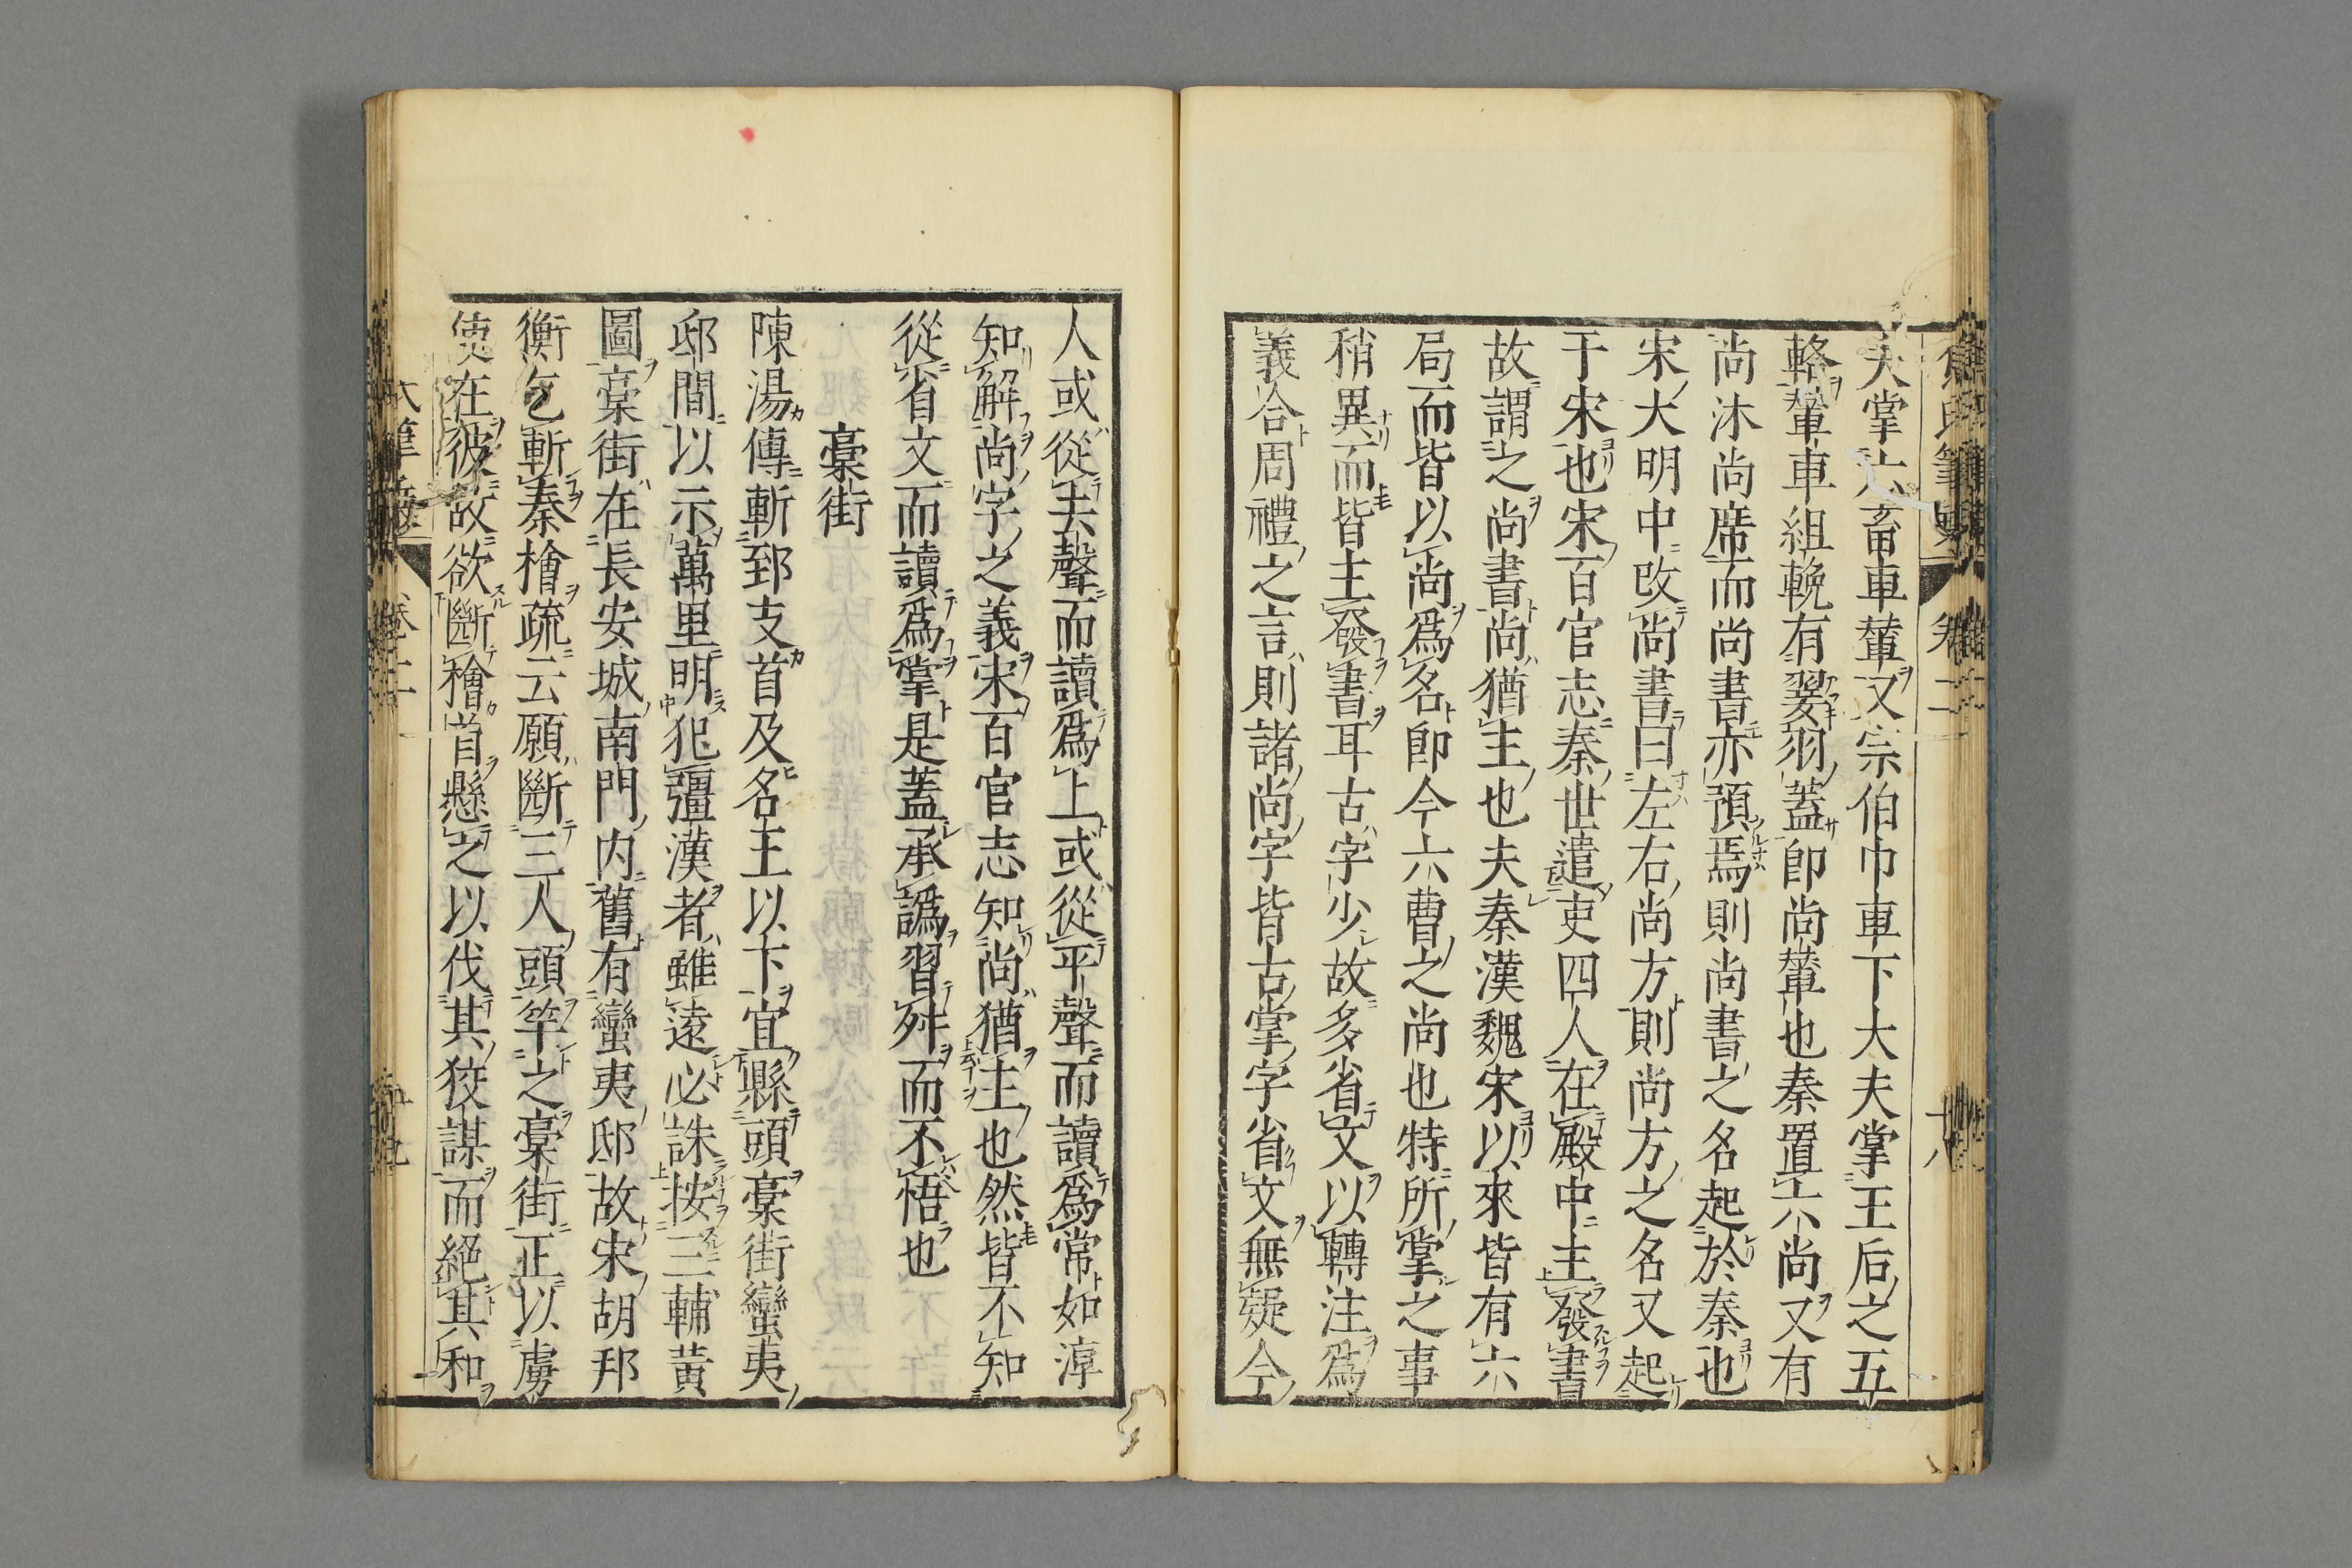 夫掌六畜車輦又宗伯巾車下大夫掌王后之五
輅輦車組輓有翣羽蓋卽尚輦也秦置六尚又有
尚沐尚席而尚書亦預焉則尚書之名起於秦也
宋大明中改尚書曰左右尚方則尚方之名又起
于宋也宋百官志秦世遣吏四人在殿中主發書
故謂之尚書尚猶主也夫秦漢魏宋以來皆有六
局而皆以尚爲名卽今六曹之尚也特所掌之事
稍異而皆主發書耳古字少故多省文以轉注爲
義合周禮之言則諸尚字皆古掌字省文無疑今
人或從去聲而讀爲上或從平聲而讀爲常如淳
知解尚字之義宋百官志知尚猶主也然皆不知
從省文而讀爲掌是蓋承譌習舛而不悟也
藁街
陳湯傳斬郅支首及名王以下宜縣頭藁街蠻夷
邸間以示萬里明犯彊漢者雖遠必誅按三輔黃
圖藁街在長安城南門內舊有蠻夷邸故宋胡邦
衡乞斬秦檜疏云願斷三人頭竿之藁街正以虜
使在彼故欲斷檜首懸之以伐其狡謀而絕其和